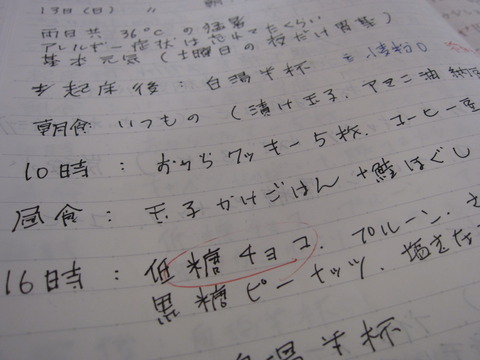 19日(日) 〃
両日共 36℃の猛暑
アレルギー症状は忘れてたくらい
基本元気(土曜日の夜だけ胃薬)
起床後:白湯半杯
朝食:いつもの(漬け玉子、アマニ油納豆
10時:おからクッキー5枚、コーヒー
昼食:玉子かけごはん+鮭ほぐし
16時:低糖チョコ、プルーン、
黒糖ピーナッツ、塩
白湯半杯